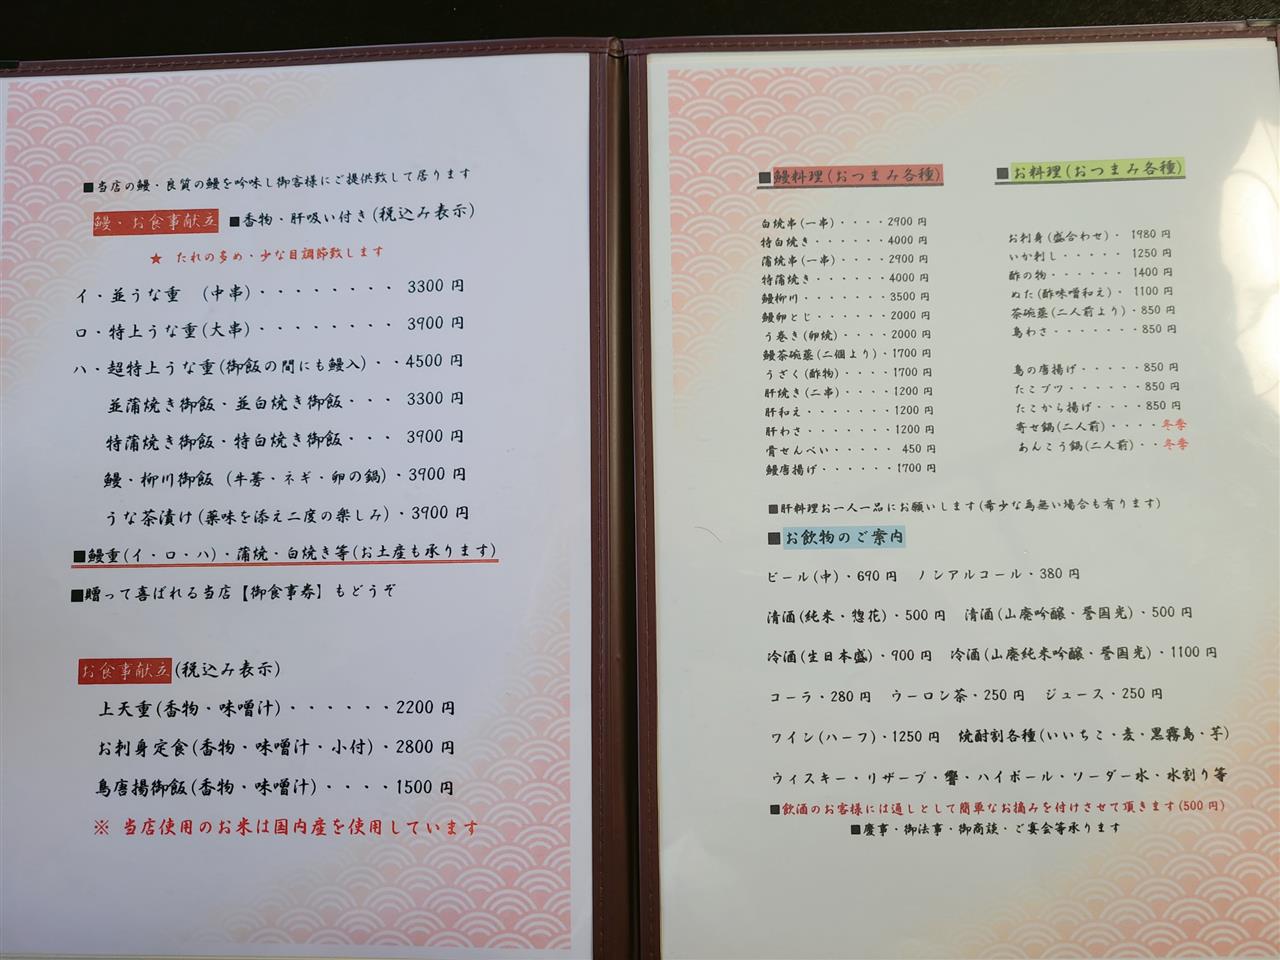 ■当店の鰻・良質の鰻を吟味し御客様にご提供致して居ります
鰻・お食事献立 ■香物・肝吸い付き(税込み表示)
★ たれの多め・少な目調節致します
イ・並うな重 (中串)・・・・・・・・ 3300 円
ロ・特上うな重(大串)・・・・・・・・ 3900 円
ハ・超特上うな重(御飯の間にも鰻入)・・4500 円
並蒲焼き御飯・並白焼き御飯・・・ 3300 円
特蒲焼き御飯・特白焼き御飯・・・ 3900 円
鰻・柳川御飯 (牛蒡・ネギ・卵の鍋)・3900 円
うな茶漬け(薬味を添え二度の楽しみ)・3900 円
■鰻重(イ・ロ・ハ)・蒲焼・白焼き等(お土産も承ります)
■贈って喜ばれる当店【御食事券】もどうぞ
お食事献立(税込み表示)
上天重(香物・味噌汁)・・・・・・2200 円
お刺身定食(香物・味噌汁・小付)・2800 円
鳥唐揚御飯(香物・味噌汁)・・・・1500 円
※ 当店使用のお米は国内産を使用しています
■鰻料理(おつまみ各種)
白焼串(一串)・・・・2900 円
特白焼き・・・・・・4000 円
蒲焼串(一串)・・・・2900 円
特蒲焼き・・・・・・4000 円
鰻柳川・・・・・・・3500 円
鰻卵とじ・・・・・・2000 円
う巻き(卵焼)・・・・2000 円
鰻茶碗蒸(二個より)・1700 円
うざく(酢物)・・・・1700 円
肝焼き(二串)・・・・1200 円
肝和え・・・・・・・1200 円
肝わさ・・・・・・・1200 円
骨せんべい・・・・・ 450 円
鰻唐揚げ・・・・・・1700 円
■お料理(おつまみ各種)
お刺身(盛合わせ)・ 1980 円
いか刺し・・・・・ 1250 円
酢の物・・・・・・ 1400 円
ぬた(酢味噌和え)・ 1100 円
茶碗蒸(二人前より)・850 円
鳥わさ・・・・・・・850 円
鳥の唐揚げ・・・・・850 円
たこブツ・・・・・・850 円
たこから揚げ・・・・850 円
寄せ鍋(二人前)・・・・冬季
あんこう鍋(二人前)・・冬季
■肝料理お一人一品にお願いします(希少な為無い場合も有ります)
■お飲物のご案内
ビール(中)・690 円 ノンアルコール・380 円
清酒(純米・惣花)・500 円 清酒(山廃吟醸・誉国光)・500 円
冷酒(生日本盛)・900 円 冷酒(山廃純米吟醸・誉国光)・1100 円
コーラ・280 円 ウーロン茶・250 円 ジュース・250 円
ワイン(ハーフ)・1250 円 焼酎割各種(いいちこ・麦・黒霧島・芋)
ウィスキー・リザーブ・響・ハイボール・ソーダー水・水割り等
■飲酒のお客様には通しとして簡単なお摘みを付けさせて頂きます(500 円)
■慶事・御法事・御商談・ご宴会等承ります